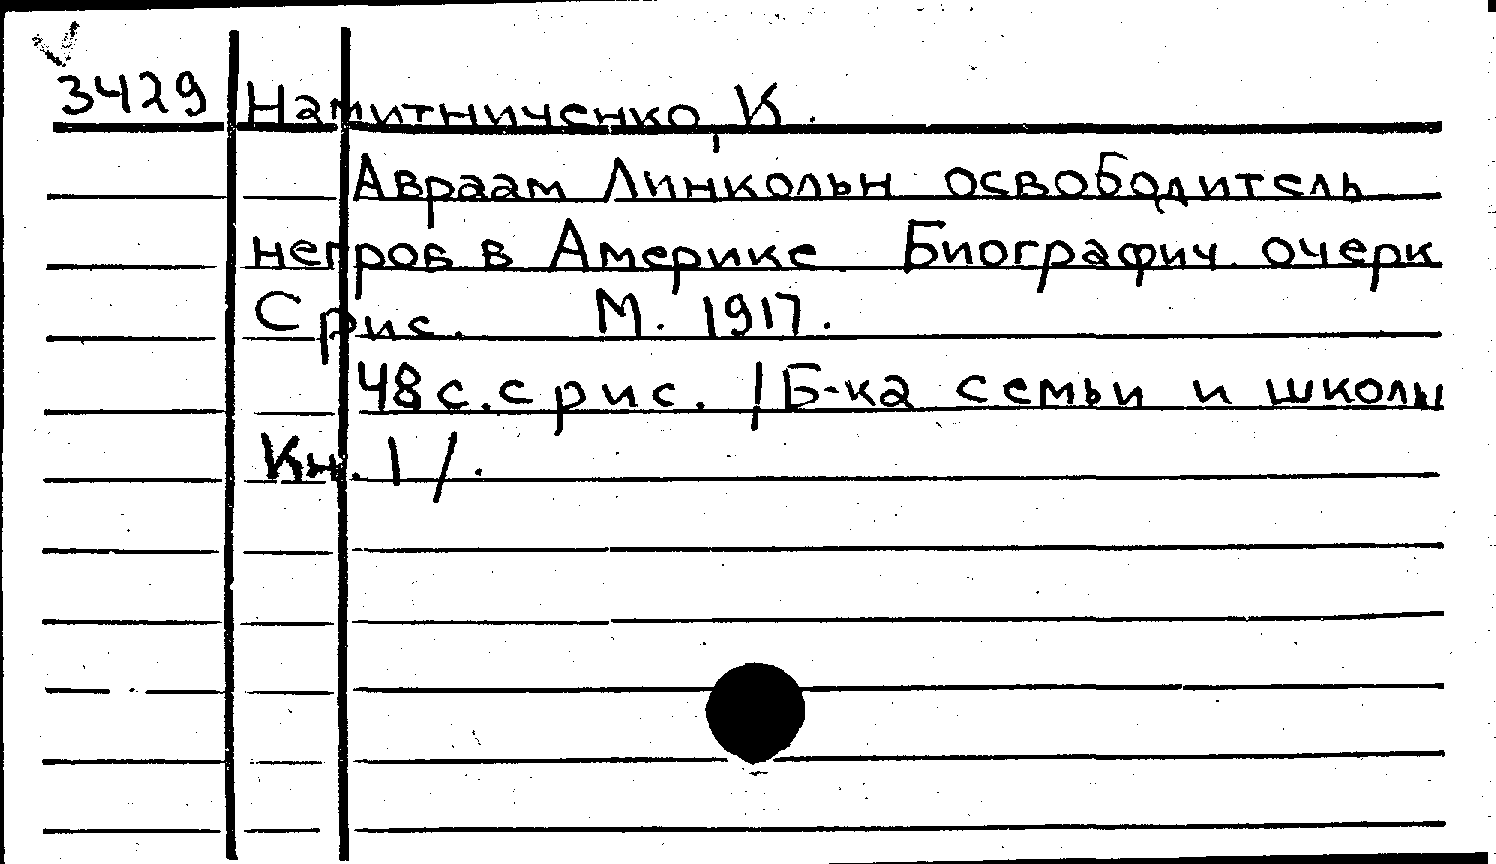 3429 Намитниченко, К.
Авраам Линкольн освободитель
негров в Америке Биографич. очерк
С рис. М. 1917.
48 с. с рис. /Б-ка семьи и школы
Кн. 1/.